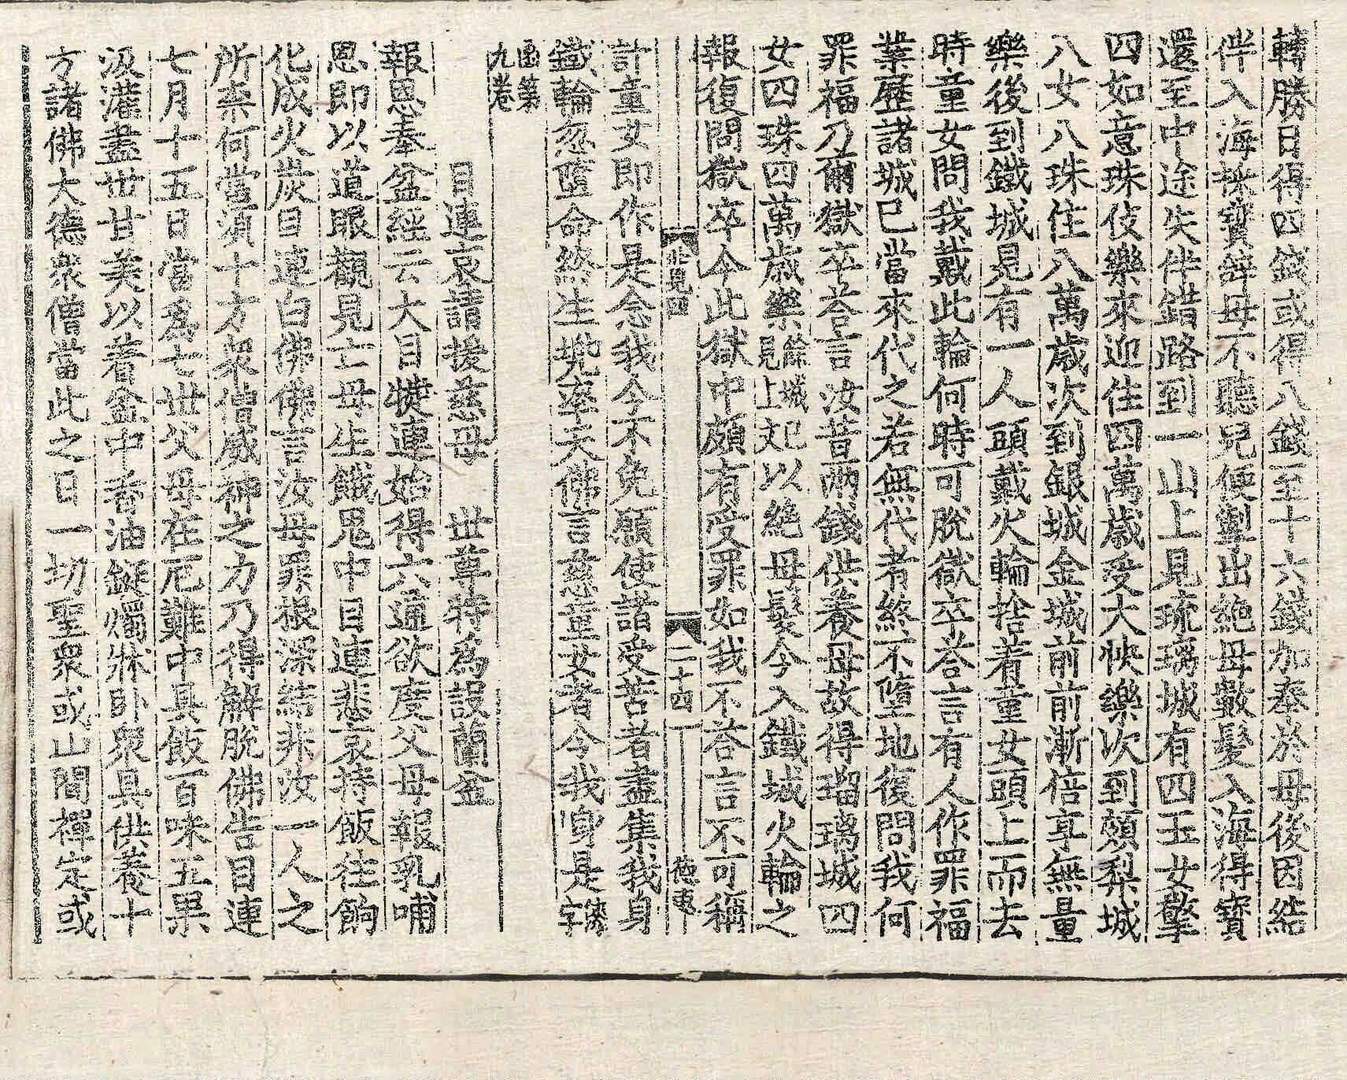 轉勝日得四錢或得八錢至十六錢加奉於母後因結
伴入海採寳辝母不聽兒便掣出絶母數髮入海得寳
還至中途失伴錯路到一山上見琉璃城有四玉女擎
四如意珠伎樂來迎住四萬歲受大快樂次到頗梨城
八女八珠住八萬歲次到銀城金城前前漸倍享無量
樂後到鐵城見有一人頭戴火輪捨着童女頭上而去
時童女問我戴此輪何時可脫獄卒荅言有人作罪福
業歷諸城已當來代之若無代者終不墮地復問我何
罪福乃爾獄卒荅言汝昔兩錢供養母故得瑠璃城四
女四珠四萬歲樂餘城見上文巳以絶母髮今入鐵城火輪之
報復問獄卒今此獄中頗有受罪如我不荅言不可稱
非見四 二十四
計童女即作是念我今不免願使諸受苦者盡集我身
鐵輪忽墮命終生兠率天佛言慈童女者今我身是
函第九卷
目連哀請援慈母 世尊特為設蘭盆
報恩奉盆經云大目犍連始得六通欲度父母報乳哺
恩即以道眼觀見亡母生餓鬼中目連悲哀持飯往餉
化成火炭目連白佛佛言汝母罪根深結非汝一人之
所柰何當須十方衆僧威神之力乃得解脫佛告目連
七月十五日當爲七世父母在厄難中具飯百味五果
汲灌盡世甘美以着盆中香油鋌燭牀卧衆具供養十
方諸佛大德衆僧當此之日一切聖衆或山間禪定或